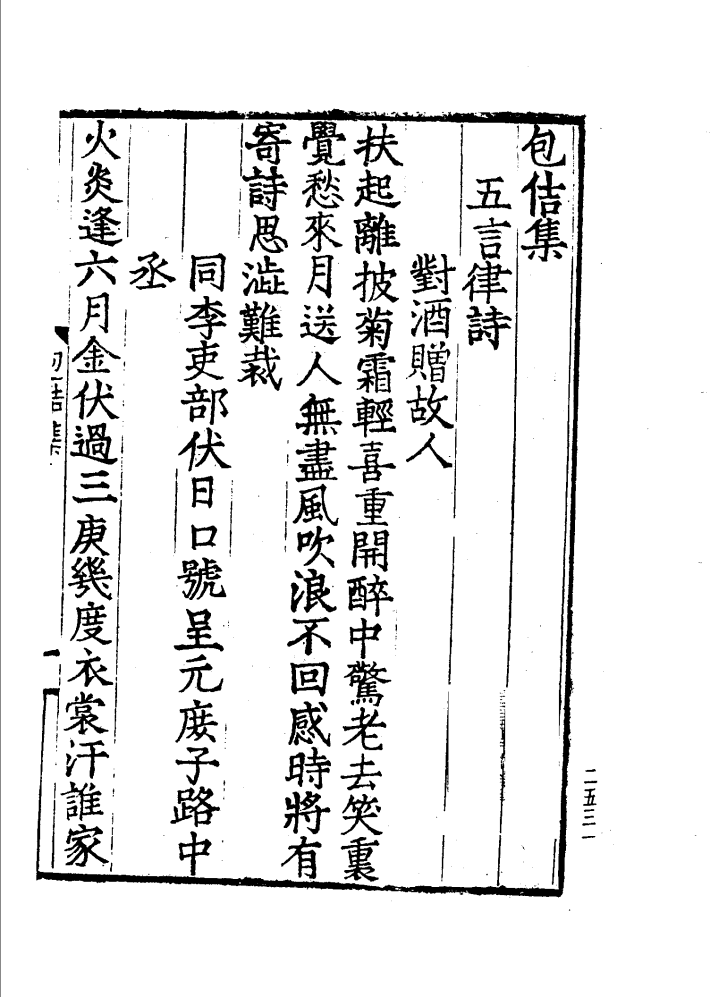 包佶集
五言律詩
對酒贈故人
扶起離披菊霜輕喜重開醉中驚老去笑裏
覺愁來月送人無盡風吹浪不回感時將有
寄詩思澁難裁
同李吏部伏日口號呈元庻子路中
丞
火炎逢六月金伏過三庚幾度衣裳汗誰家
包佶集
一
二五三一